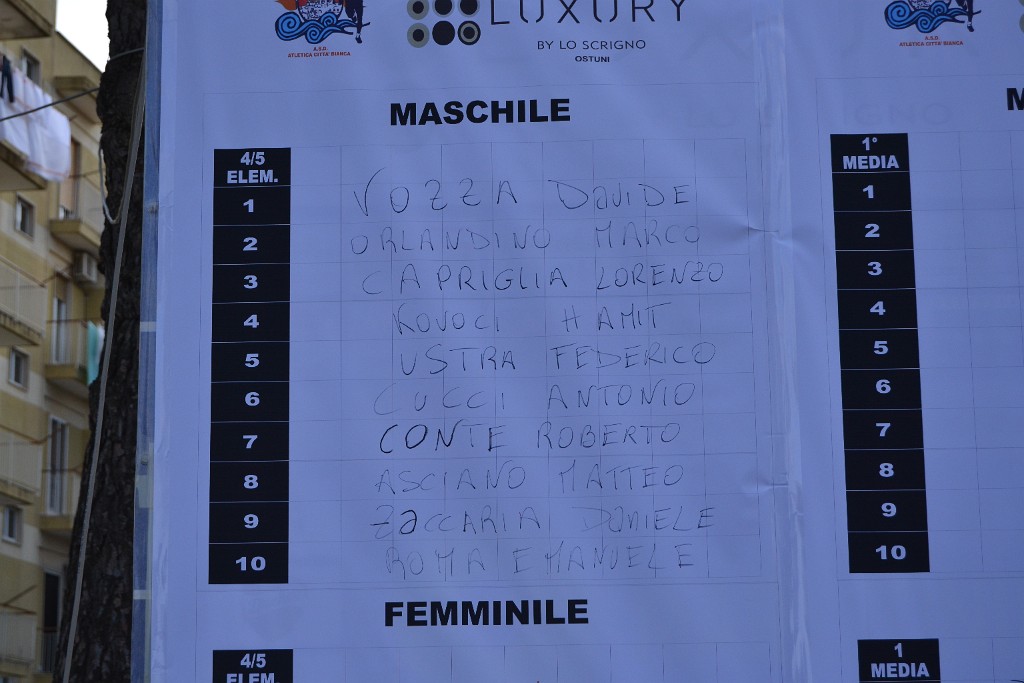 A.S.D.
ATLETICA CITTA' BIANCA
LUXURY
BY LO SCRIGNO
OSTUNI
A.S.D.
ATLETICA CITTA' BIANCA
MASCHILE
M
4/5
ELEM.
1 VOZZA DAVIDE
2 ORLANDINO MARCO
3 CAPRIGLIA LORENZO
4 KOVOCI HAMIT
5 USTRA FEDERICO
6 CUCCI ANTONIO
7 CONTE ROBERTO
8 ASCIANO MATTEO
9 ZACCARIA DANIELE
10 ROMA EMANUELE
1°
MEDIA
1
2
3
4
5
6
7
8
9
10
FEMMINILE
4/5
ELEM.
1
MEDIA